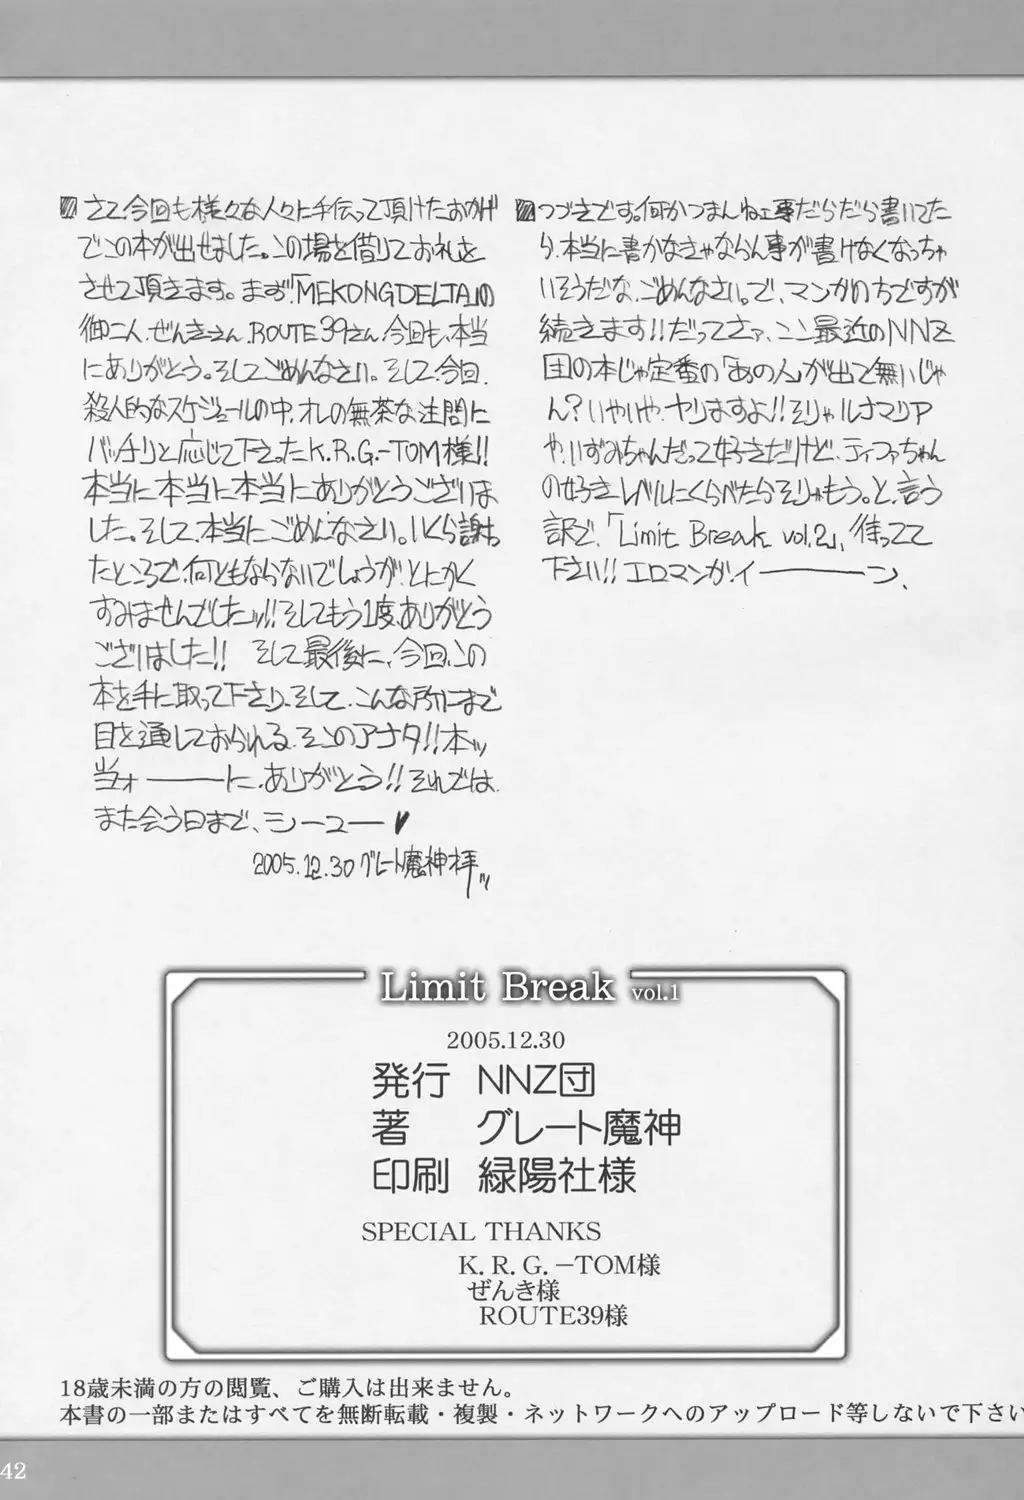 さて、今回も様々な人々に手伝って頂けたおかげ
でこの本が出せました。この場を借りてお礼を
させて頂きます。まず「MEKONGDELTA」の
御二人、ぜんきさん、ROUTE39さん、今回も、本当
にありがとう。そしてごめんなさい。そして、今回、
殺人的なスケジュールの中、オレの無茶な注問に
バッチリと応じて下さったK.R.G.-TOM様!!
本当に本当に本当にありがとうございま
した。そして、本当にごめんなさい。いくら謝っ
たところで、何ともならないでしょうが、とにかく
すみませんでしたッ!!そしてもう1度、ありがとう
ございました!! そして最後に、今回、この
本を手に取って下さり、そして、こんな所にまで
目を通しておられる、そこのアナタ!!本ッ
当ォーーーに、ありがとう!!それでは、
また会う日まで、シーユー♥
2005.12.30 グレート魔神拝ッ
つづきです。何かつまんねェ事だらだら書いてた
ら、本当に書かなきゃならん事が書けなくなっちゃ
いそうだな、ごめんなさい。で、マンガのちですが
続きます!!だってさァ、ここ最近のNNZ
団の本じゃ定番の「あの人」が出て無いじゃ
ん?いやいや、ヤリますよ!!そりゃルナマリア
や、いずみちゃんだって好きだけど、ティファちゃん
の好きレベルにくらべたらそりゃもう。と、言う
訳で、「Limit Break vol.2」、待ってて
下さい!!エロマンガ、イーーーン、
Limit Break vol.1
2005.12.30
発行 NNZ団
著 グレート魔神
印刷 緑陽社様
SPECIAL THANKS
K.R.G.-TOM様
ぜんき様
ROUTE39様
18歳未満の方の閲覧、ご購入は出来ません。
本書の一部またはすべてを無断転載・複製・ネットワークへのアップロード等しないで下さい
42